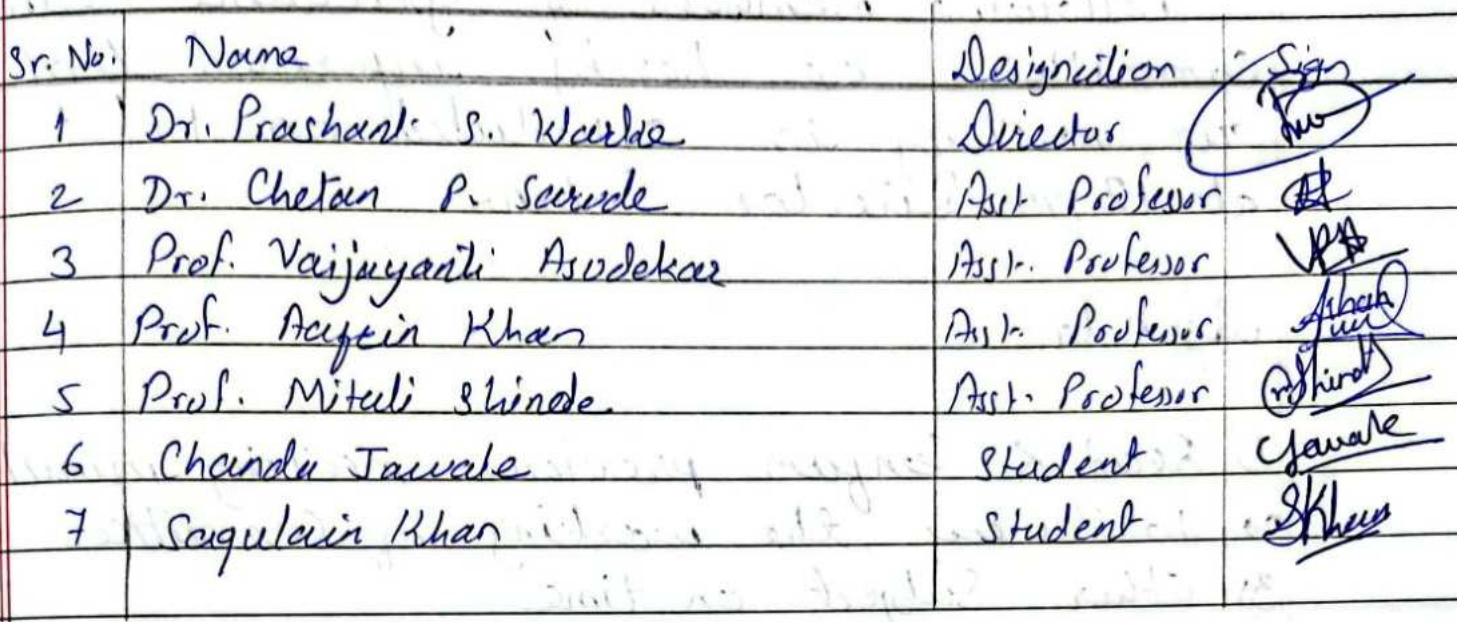 Sr. No. Name Designation Sign
1 Dr. Prashant S. Warke Director
2 Dr. Chetan P. Sarode Asst Professor
3 Prof. Vaijayanti Asodekar Asst. Professor VPA
4 Prof. Khan Asst. Professor.
5 Prof. Mitali Shinde Asst. Professor Shinde
6 Chanda Jawale Student CJawale
7 Saqulain Khan Student SKhan